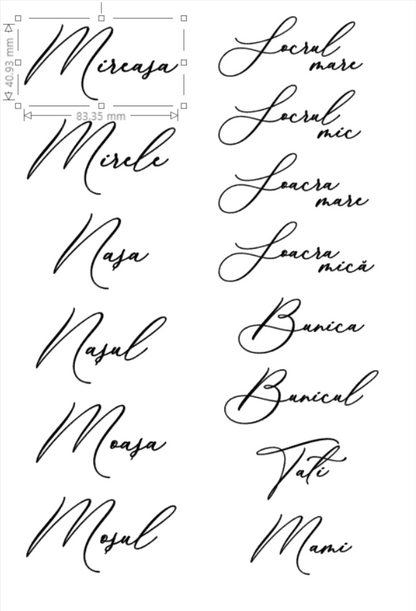 Mireasa
40.93 mm
83.35 mm
Mirele
Nașa
Nașul
Moașa
Moșul
Socrul
mare
Socrul
mic
Soacra
mare
Soacra
mică
Bunica
Bunicul
Tati
Mami